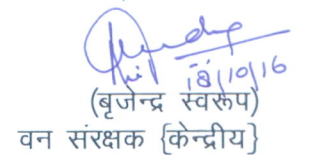 18/10/16
(बृजेन्द्र स्वरूप)
वन संरक्षक {केन्द्रीय}